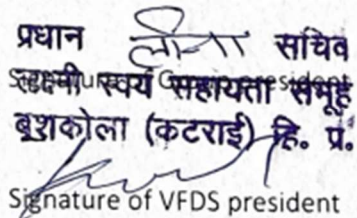 प्रधान लीला सचिव
Signature of Group president
लक्ष्मी स्वयं सहायता समूह
बुशकोला (कटराई) हि. प्र.
Signature of VFDS president